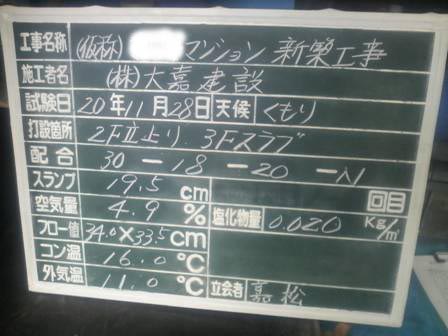 工事名称 (仮称) マンション 新築工事
施工者名 (株)大嘉建設
試験日 20年11月28日 天候 くもり
打設箇所 2F立上り. 3Fスラブ
配合 30－18－20－N
スランプ 19.5 cm 回目
空気量 4.9 % 塩化物量 0.020 Kg/m³
フロー値 34.0×33.5 cm
コン温 16.0 ℃
外気温 11.0 ℃ 立会者 嘉松